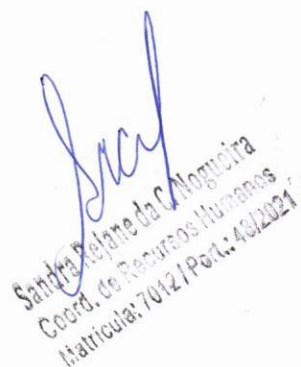 Sandra Rejane da C. Nogueira
Coord. de Recursos Humanos
Matrícula: 7012 / Port.: 48/2021